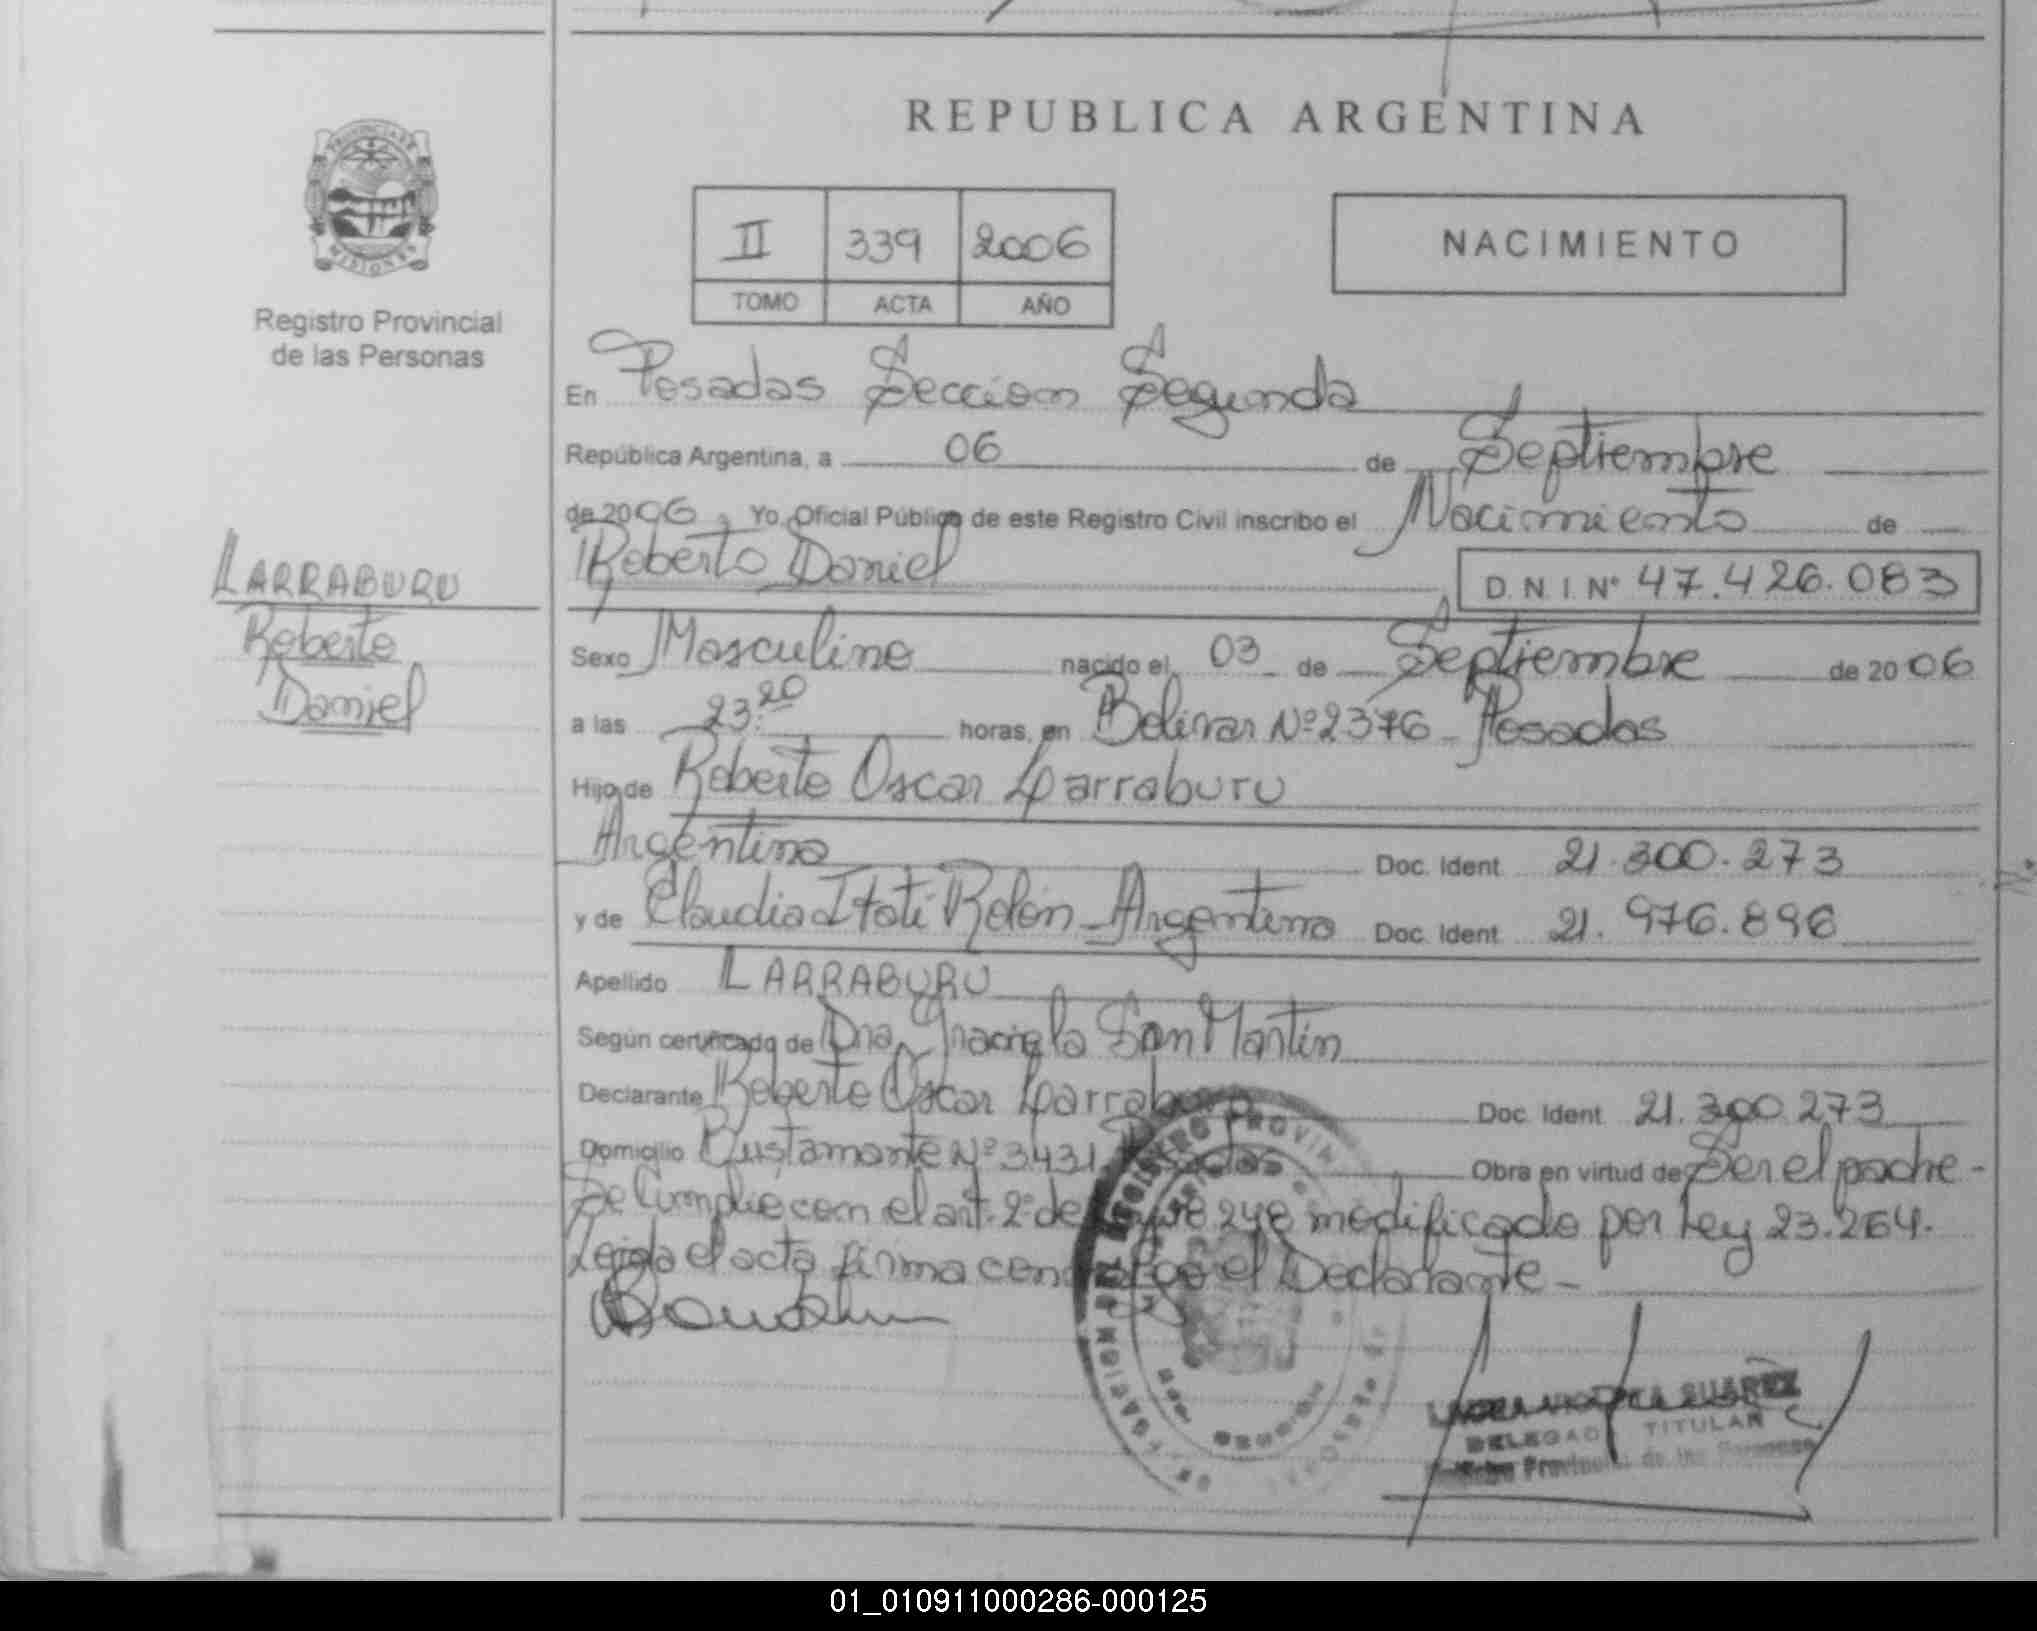 REPUBLICA ARGENTINA
PROVINCIA DE
MISIONES
Registro Provincial
de las Personas
II 339 2006
TOMO ACTA AÑO
NACIMIENTO
En Posadas Seccion Segunda
República Argentina, a 06 de Septiembre
de 2006, Yo, Oficial Público de este Registro Civil inscribo el Nacimiento de
Roberto Daniel D. N. I. N° 47.426.083
LARRABURU
Roberto
Daniel
Sexo Masculino nacido el 03 de Septiembre de 2006
a las 23:20 horas, en Bolivar Nº 2376 - Posadas
Hijo de Roberto Oscar Larraburu
Argentino Doc. Ident 21.300.273
y de Claudia Itati Rolón - Argentina Doc. Ident 21.976.896
Apellido LARRABURU
Según certificado de Dra. Graciela San Martin
Declarante Roberto Oscar Larraburu Doc. Ident 21.300.273
Domicilio Bustamante Nº 3431 Posadas Obra en virtud de Ser el padre -
Se Cumplió con el art. 2º de Ley 18.248 modificado por Ley 23.264.
Leida el acta firma conmigo el Declarante -
SUÁREZ
DELEGADO TITULAR
Registro Provincial de las Personas
01_010911000286-000125